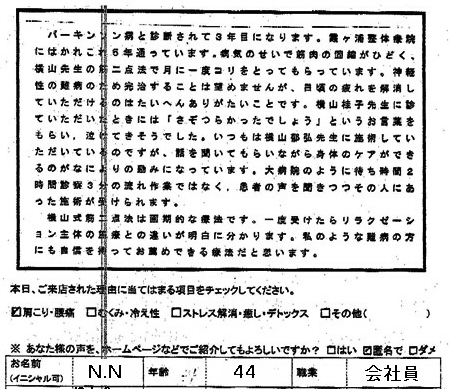 パーキンソン病と診断されて３年目になります。霞ヶ浦整体療院
にはかれこれ５年通っています。病気のせいで筋肉の固縮がひどく、
横山先生の筋二点法で月に一度コリをとってもらっています。神経
性の難病のため完治することは望めませんが、日頃の疲れを解消し
ていただけるのはたいへんありがたいことです。横山桂子先生に診
ていただいたときには「さぞつらかったでしょう」というお言葉を
もらい、泣けてきそうでした。いつもは横山郡弘先生に施術してい
ただいているのですが、話を聞いてもらいながら身体のケアができ
るのがなによりの励みになっています。大病院のように待ち時間２
時間診察３分の流れ作業ではなく、患者の声を聞きつつその人にあ
った施術が受けられます。
横山式筋二点法は画期的な療法です。一度受けたらリラクゼーシ
ョン主体の施療との違いが明白に分かります。私のような難病の方
にも自信を持ってお薦めできる療法だと思います。
本日、ご来店された理由に当てはまる項目をチェックしてください。
☑肩こり・腰痛 □むくみ・冷え性 □ストレス解消・癒し・デトックス □その他( )
※ あなた様の声を、ホームページなどでご紹介してもよろしいですか？ □はい ☑匿名で □ダメ
お名前 N.N 年齢 44 職業 会社員
(イニシャル可)